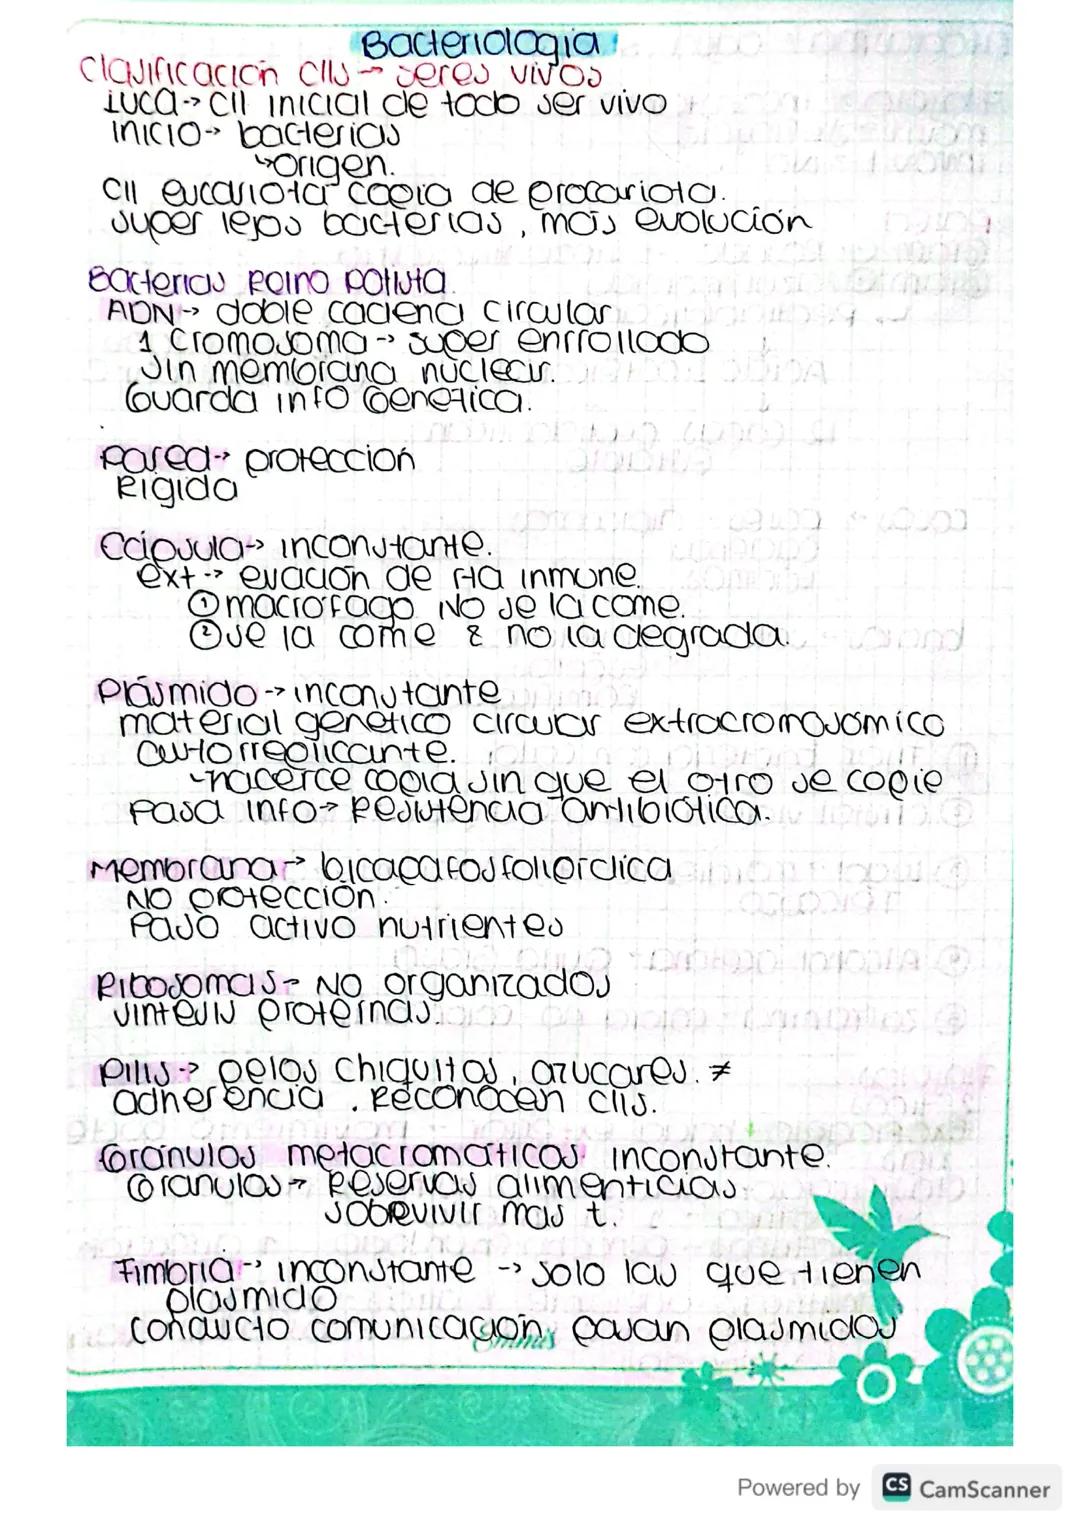 Bacteriologia
Clasificación clls → seres vivos
LUCA → cll inicial de todo ser vivo
inicio → bacterias
↳ origen.
Cll eucariota copia de procariota.
super lejos bacterias, más evolución
Bacterias Reino
ADN → doble cadena circular
1 Cromosoma → super enrrollado
Sin membrana nuclear.
Guarda info Genetica.
Pared → protección
Rigida
Cápsula → inconstante.
ext → evación de rta inmune.
① macrofago NO se la come.
② se la come & no la degrada.
Plásmido → inconstante
material genético circular extracromosómico
autorreplicante.
↳ hacerce copia sin que el otro se copie
Pasa info → Resistencia antibiótica.
Membrana → bicapa fosfolipídica
NO protección.
Paso activo nutrientes
Ribosomas → NO organizados
síntesis proteínas.
Pilis → pelos chiquitos, azucares. ≠
adherencia. Reconocen clls.
Gránulos metacromáticos inconstante.
Granulos → Reservas alimenticias
sobrevivir mas t.
Fimbria → inconstante → solo las que tienen
plasmido
Conducto comunicación, pasan plasmidos
Powered by CS CamScanner